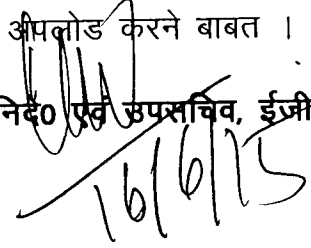 अपलोड करने बाबत ।
निदे0 एवं उपसचिव, ईजी
16/6/15